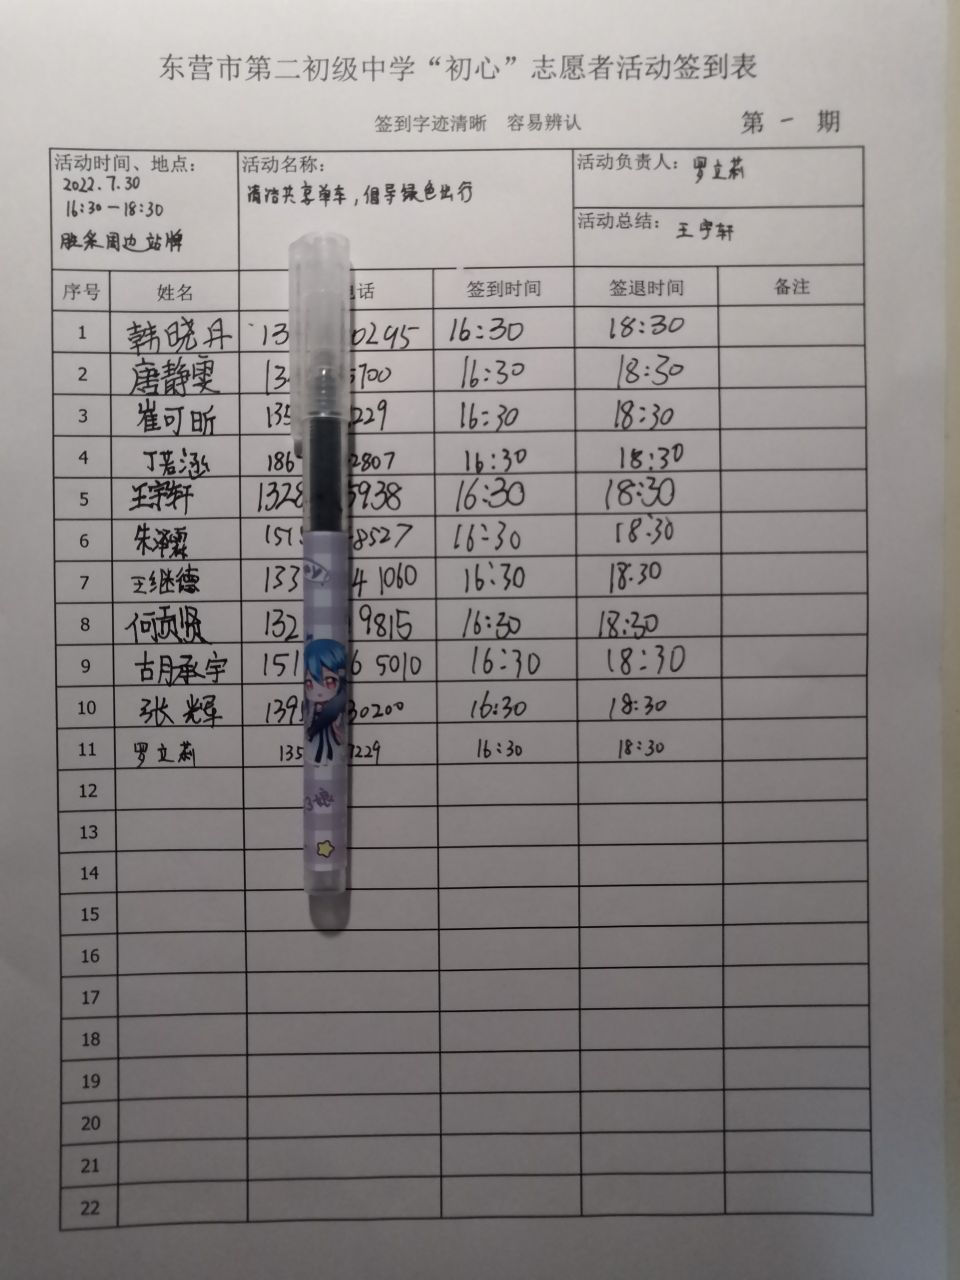 东营市第二初级中学“初心”志愿者活动签到表
签到字迹清晰 容易辨认 第 一 期
活动时间、地点： 活动名称： 活动负责人：罗立莉
2022.7.30 清洁共享单车，倡导绿色出行
16:30－18:30 活动总结：王宇轩
胜采周边站牌
序号 姓名 电话 签到时间 签退时间 备注
1 韩晓丹 13 0295 16:30 18:30
2 唐静雯 13 5700 16:30 18:30
3 崔可昕 135 229 16:30 18:30
4 丁若涵 186 2807 16:30 18:30
5 王宇轩 1328 5938 16:30 18:30
6 朱泽霖 151 8527 16:30 18:30
7 王继德 133 4 1060 16:30 18.30
8 何贡贤 132 9815 16:30 18:30
9 胡承宇 151 6 5010 16:30 18:30
10 张辉 139 30200 16:30 18:30
11 罗立莉 135 7229 16:30 18:30
12
13
14
15
16
17
18
19
20
21
22